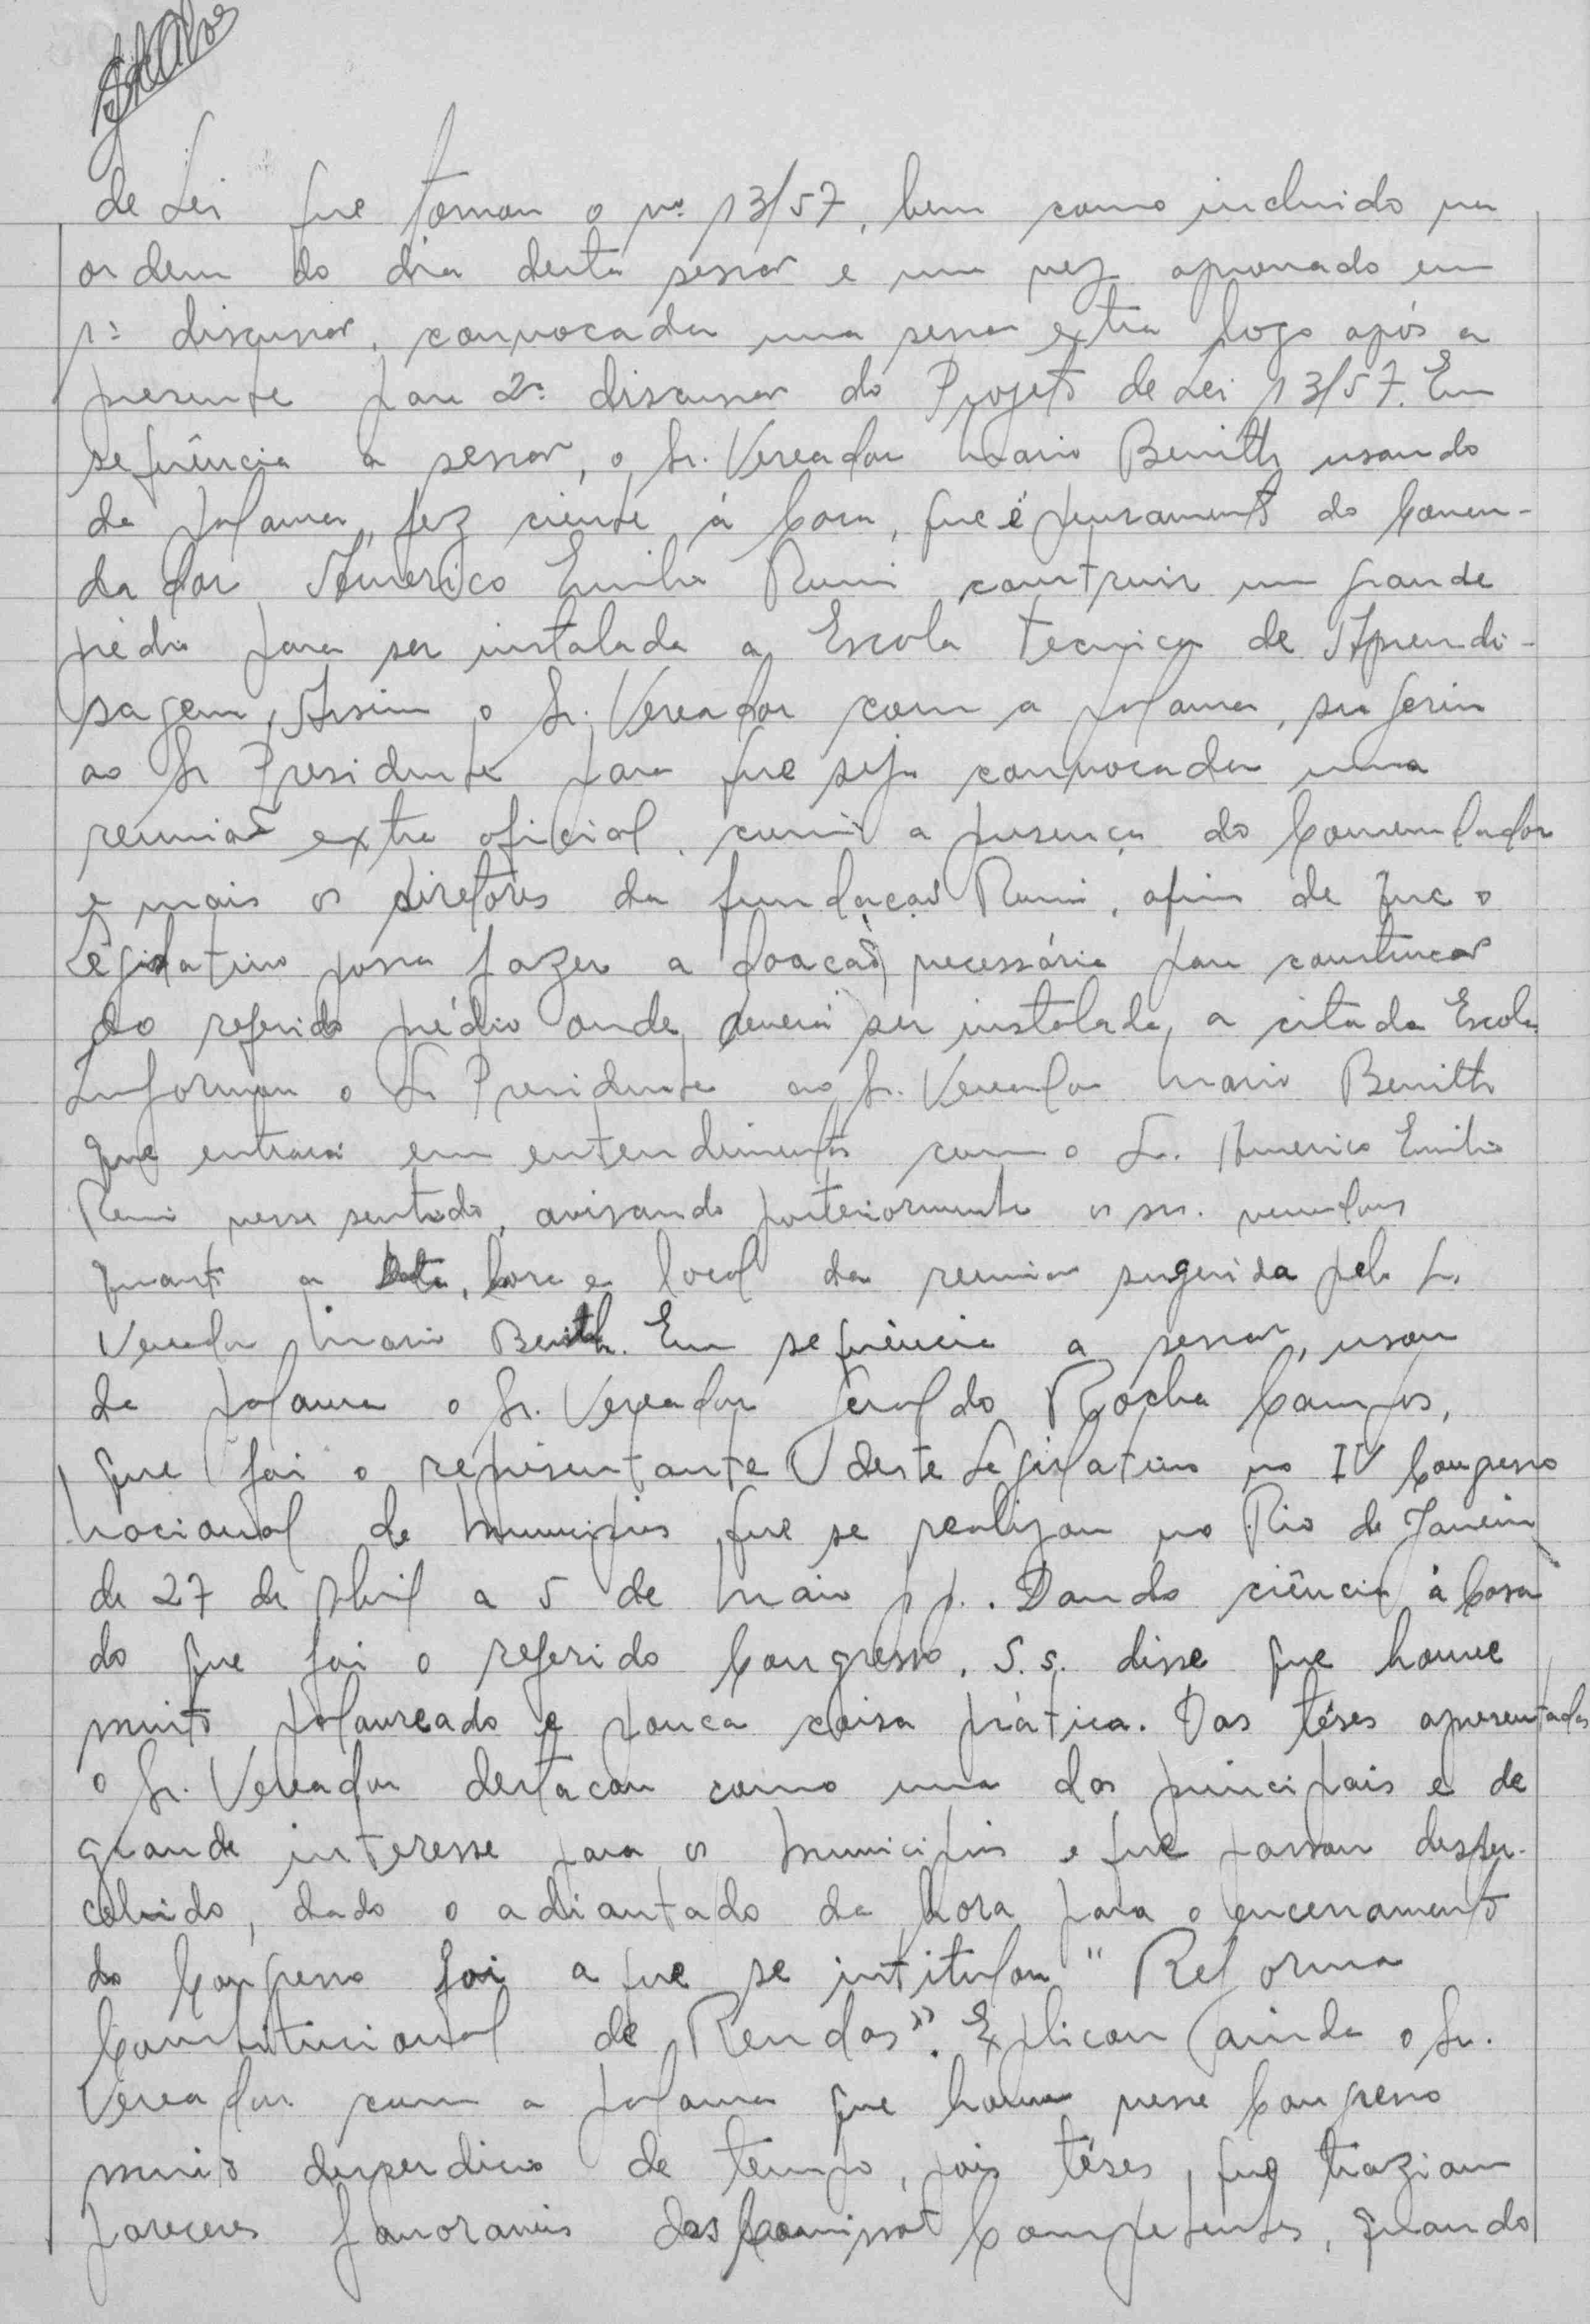 de Lei que tomou o nº 13/57, bem como incluido na
ordem do dia desta sessão e uma vez aprovado em
1ª discussão, convocada uma sessão extra logo após a
presente para 2ª discussão do Projeto de Lei 13/57. Em
sequência a sessão, o Sr. Vereador Mario Benitth usando
da palavra, fez ciente à Casa, que é pensamento do Comen-
dador Americo Emilio Romi construir um grande
prédio para ser instalada a Escola Tecnica de Aprendi-
sagem, Assim o Sr. Vereador com a palavra, sugeriu
ao Sr Presidente para que seja convocada uma
reunião extra oficial, com a presença do Comendador
e mais os diretôres da fundação Romi, afim de que o
Legislativo possa fazer a doação necessária para construção
do referido prédio onde deverá ser instalada a citada Escola
Informou o Sr Presidente ao Sr. Vereador Mario Benitth
que entrará em entendimentos com o Sr. Americo Emilio
Romi nesse sentido, avisando posteriormente os srs. vereadores
quanto a data, hora e local da reunião sugerida pelo Sr.
Vereador Mario Benitth. Em sequência a sessão, usou
da palavra o Sr. Vereador Geraldo Rocha Campos,
que foi o representante deste Legislativo no IV Congresso
Nacional de Municipios que se realizou no Rio de Janeiro
de 27 de Abril a 5 de Maio pp.. Dando ciência à Casa
do que foi o referido Congresso, S.s. disse que houve
muito palavreado e pouca coisa prática. Das téses apresentadas
o Sr. Vereador destacou como uma das principais e de
grande interesse para os Municipios e que passou desper-
cebido, dado o adiantado da hora para o encerramento
do Congresso foi a que se intitulou "Reforma
Constitucional de Rendas". Explicou ainda o Sr.
Vereador com a palavra que houve nesse Congresso
muito desperdicio de tempo, pois téses, que traziam
pareceres favoraveis das Competentes, quando